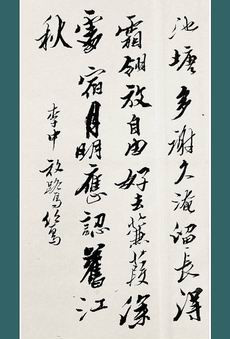 池塘多謝久淹留長得
霜翎放自由好去蒹葭深
處宿月明應認舊江
秋
李中放鷺鷥